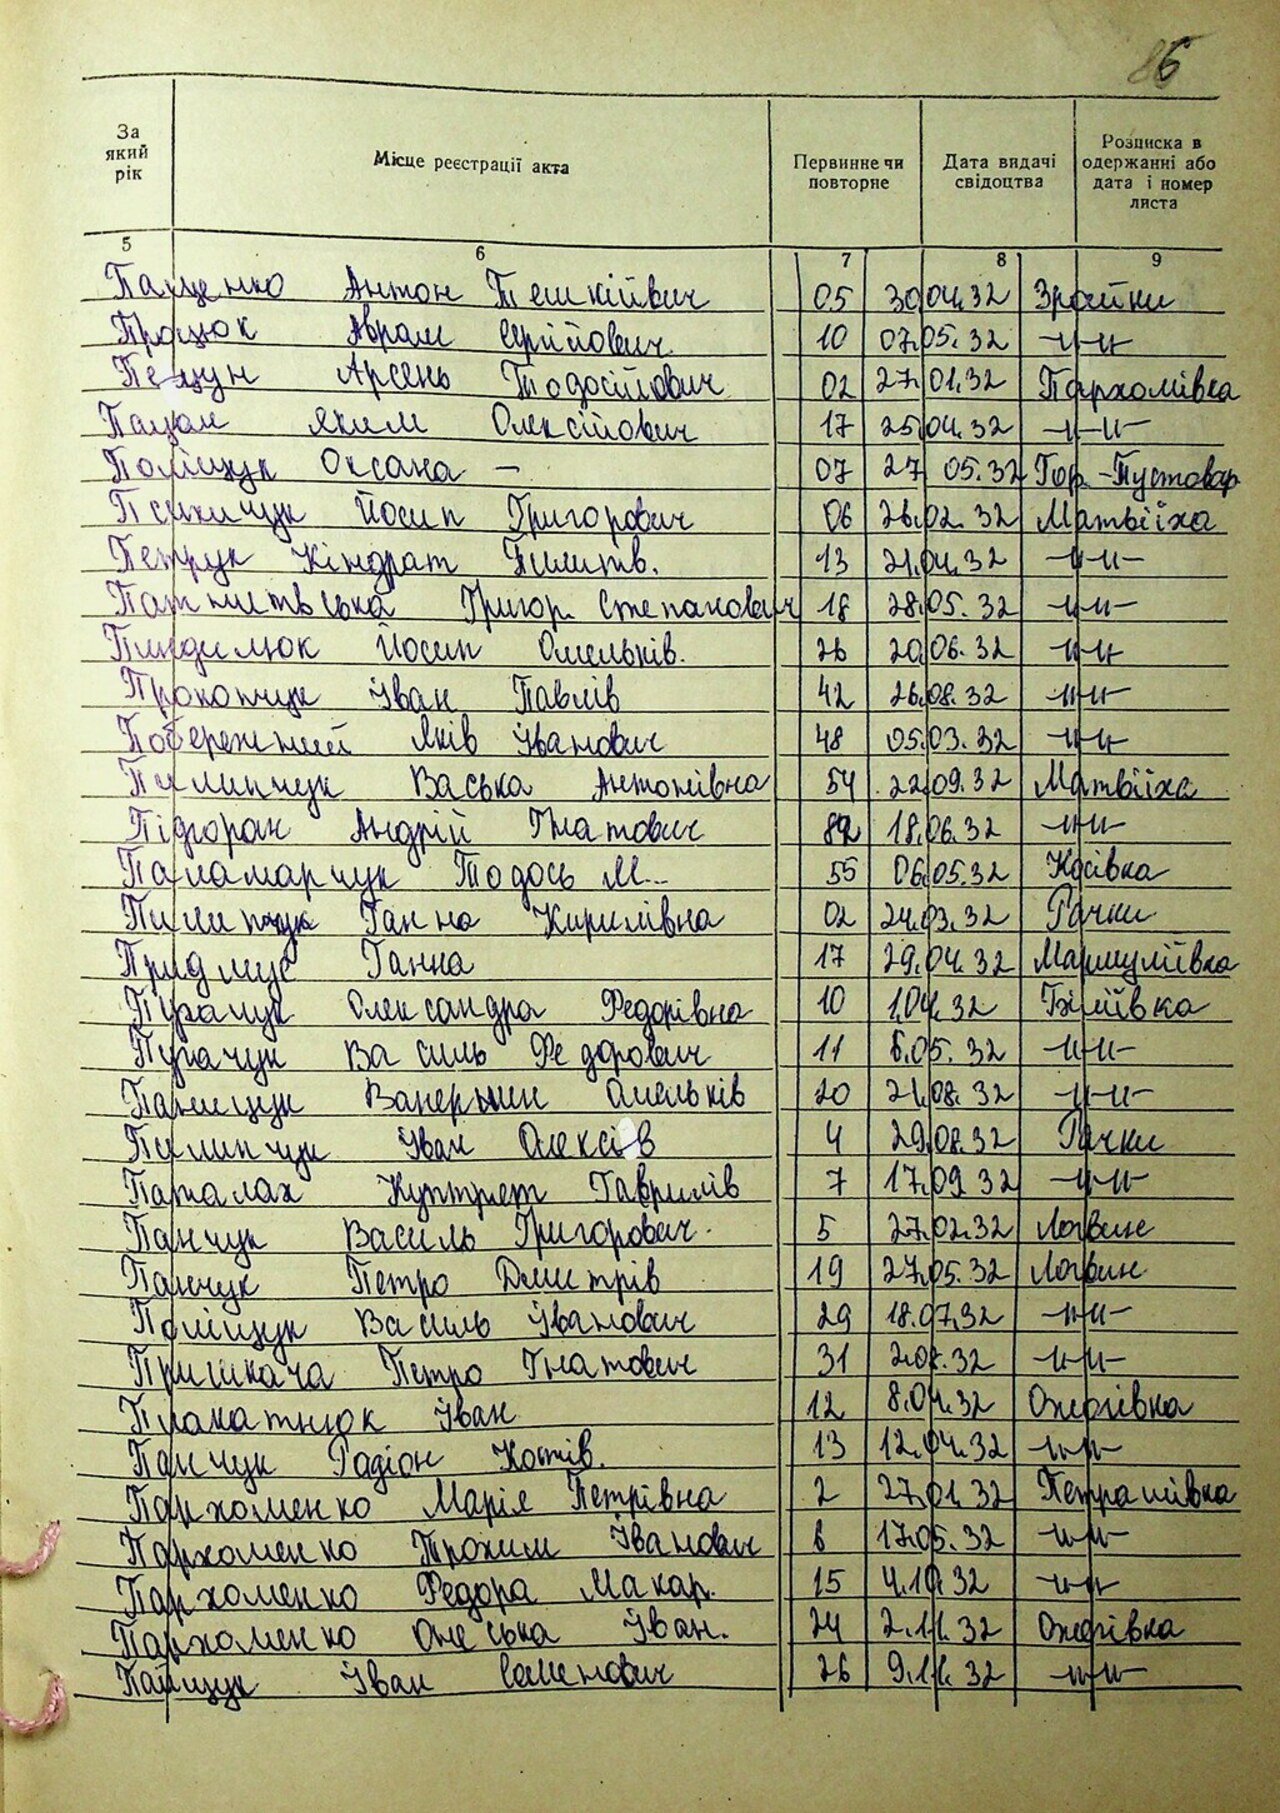 86
За який рік
Місце реєстрації акта
Первинне чи повторне
Дата видачі свідоцтва
Розписка в одержанні або дата і номер листа
5 6 7 8 9
Пащенко Антон 05 30.04.32 Зрайки
Процюк Аврам Сергійович 10 07.05.32 -"-"-
Пецун Арсень Тодосійович 02 27.01.32 Пархомівка
Пацан Яким Олексійович 17 25.04.32 -"-"-
Поліщук Оксана — 07 27 05.32 Гор.-Пустовар
Йосип Григорович 06 26.02.32 Матвіїха
Петрук Кіндрат Пилипів. 13 21.04.32 -"-"-
Григор. Степанович 18 28.05.32 -"-"-
Пиндилюк Йосип Омельків. 26 20.06.32 -"-"-
Прокопчук Іван Павлів 42 26.08.32 -"-"-
Побережний Яків Іванович 48 05.03.32 -"-"-
Пилипчук Васька Антонівна 54 22.09.32 Матвіїха
Підгоран Андрій Гнатович 82 18.06.32 -"-"-
Паламарчук Тодось М... 55 06.05.32 Косівка
Пилипчук Ганна Кирилівна 02 24.03.32 Рачки
Ганна 17 29.04.32
Пугачук Олександра Федорівна 10 1.04.32 Біліївка
Пугачук Василь Федорович 11 6.05.32 -"-"-
Панищук Омельків 20 21.08.32 -"-"-
Пилипчук Іван Олексів 4 29.08.32 Рачки
Паталах Гаврилів 7 17.09 32 -"-"-
Панчук Василь Григорович. 5 27.02.32 Логвин
Панчук Петро Дмитрів 19 27.05.32 Логвин
Поліщук Василь Іванович 29 18.07.32 -"-"-
Пришкача Петро Гнатович 31 2.08.32 -"-"-
Плакатнюк Іван 12 8.04.32 Ожегівка
Панчук Радіон Костів. 13 12.04.32 -"-"-
Пархоменко Марія Петрівна 2 27.01.32 Петрашівка
Пархоменко Трохим Іванович 6 17.05.32 -"-"-
Пархоменко Федора Макар. 15 4.10.32 -"-"-
Пархоменко Онеська Іван. 24 2.11.32 Ожегівка
Іван Семенович 26 9.11.32 -"-"-